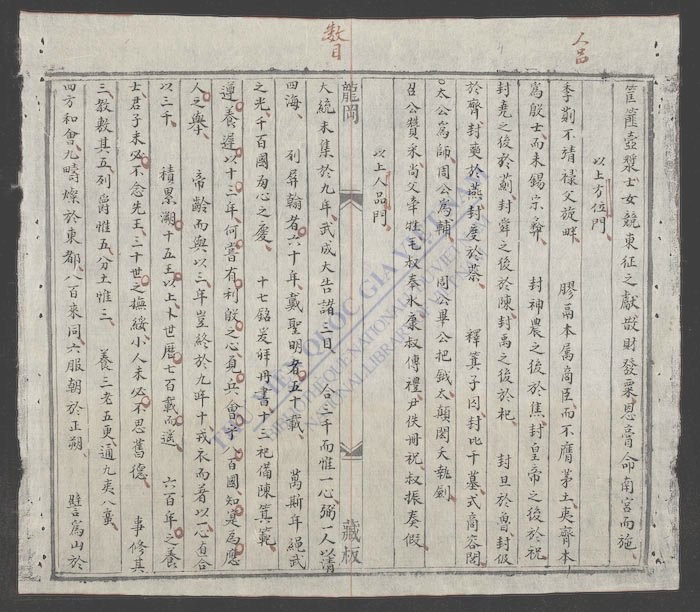 人品
數目
筐篚壺漿士女競東征之獻、散財發粟、恩膏命南宮而施、
以上方位門、
季蒯不靖祿父旋畔、 膠鬲本属商臣、而不膺茅土、夷齊本
為殷士、而未錫宗彝、 封神農之後於焦、封皇帝之後於祝、
封堯之後於薊、封舜之後於陳、封禹之後於杞、 封旦於魯、封伋
於齊、封奭於燕、封度於蔡、 釋箕子囚、封比干墓、式商容閭、
太公為師、周公為輔、 周公畢公把鉞、太顛閎夭執劍、
召公贊采、尚父牽牲、毛叔奉水、康叔傳禮、尹佚冊祝、叔振奏假、
以上人品門、
龍岡 藏板
大統未集於九年、武成大告諸三日、 合三千而惟一心、弼一人以清
四海、 列屏翰者六十年、戴聖明者五十載、 萬斯年繩武
之光、千百國為心之慶、 十七銘爰丹書、十三祀備陳箕範、
遵養遲以十三年、何嘗有利殷之心、兵會乎八百國、知寔為應
人之舉、 帝齡而與以三年、豈終於九、戎衣而著以一心、直合
以三千、 積累溯十五王以上、卜世歷七百載而遙、 六百年之養
士、君子未必不念先王、三十世之撫綏、小人未必不思舊德、 事修其
三、教敷其五、列爵惟五、分土惟三、 養三老五更、通九夷八蠻、
四方和會、九疇燦於東都、八百來同、六服朝於正朔、 譬為山於
THƯ VIỆN QUỐC GIA VIỆT NAM
BIBLIOTHEQUE NATIONALE DU VIETNAM
NATIONAL LIBRARY OF VIETNAM